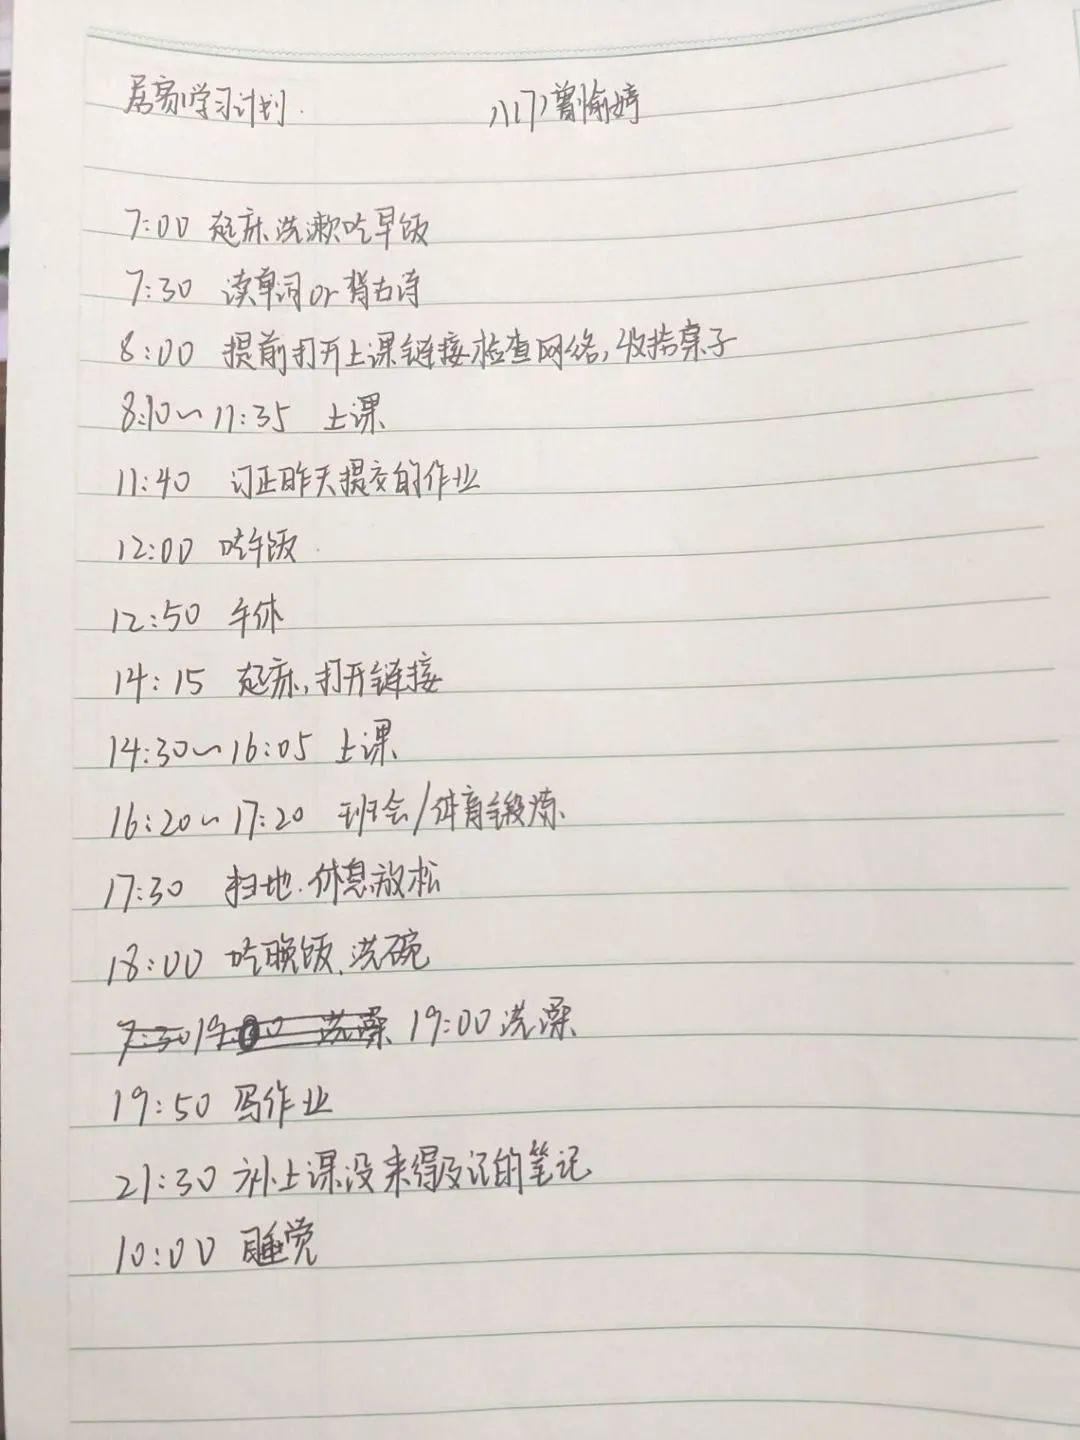 居家学习计划. 八(7)曾愉婷
7:00 起床洗漱吃早饭
7:30 读单词or背古诗
8:00 提前打开上课链接检查网络,收拾桌子
8:10~11:35 上课
11:40 订正昨天提交的作业
12:00 吃午饭.
12:50 午休
14:15 起床,打开链接
14:30~16:05 上课
16:20~17:20 班会/体育锻炼
17:30 扫地.休息放松
18:00 吃晚饭.洗碗
7:30 19:00 洗澡 19:00洗澡
19:50 写作业
21:30 补上课没来得及记的笔记
10:00 睡觉